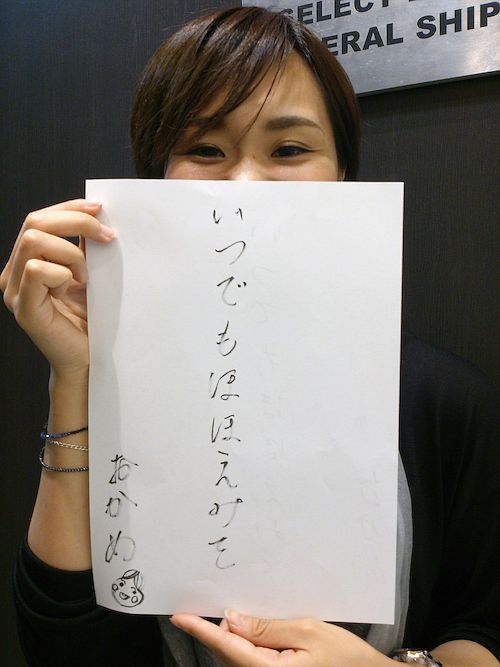 SELECT
ERAL SHIP
いつでもほほえみを
おかめ